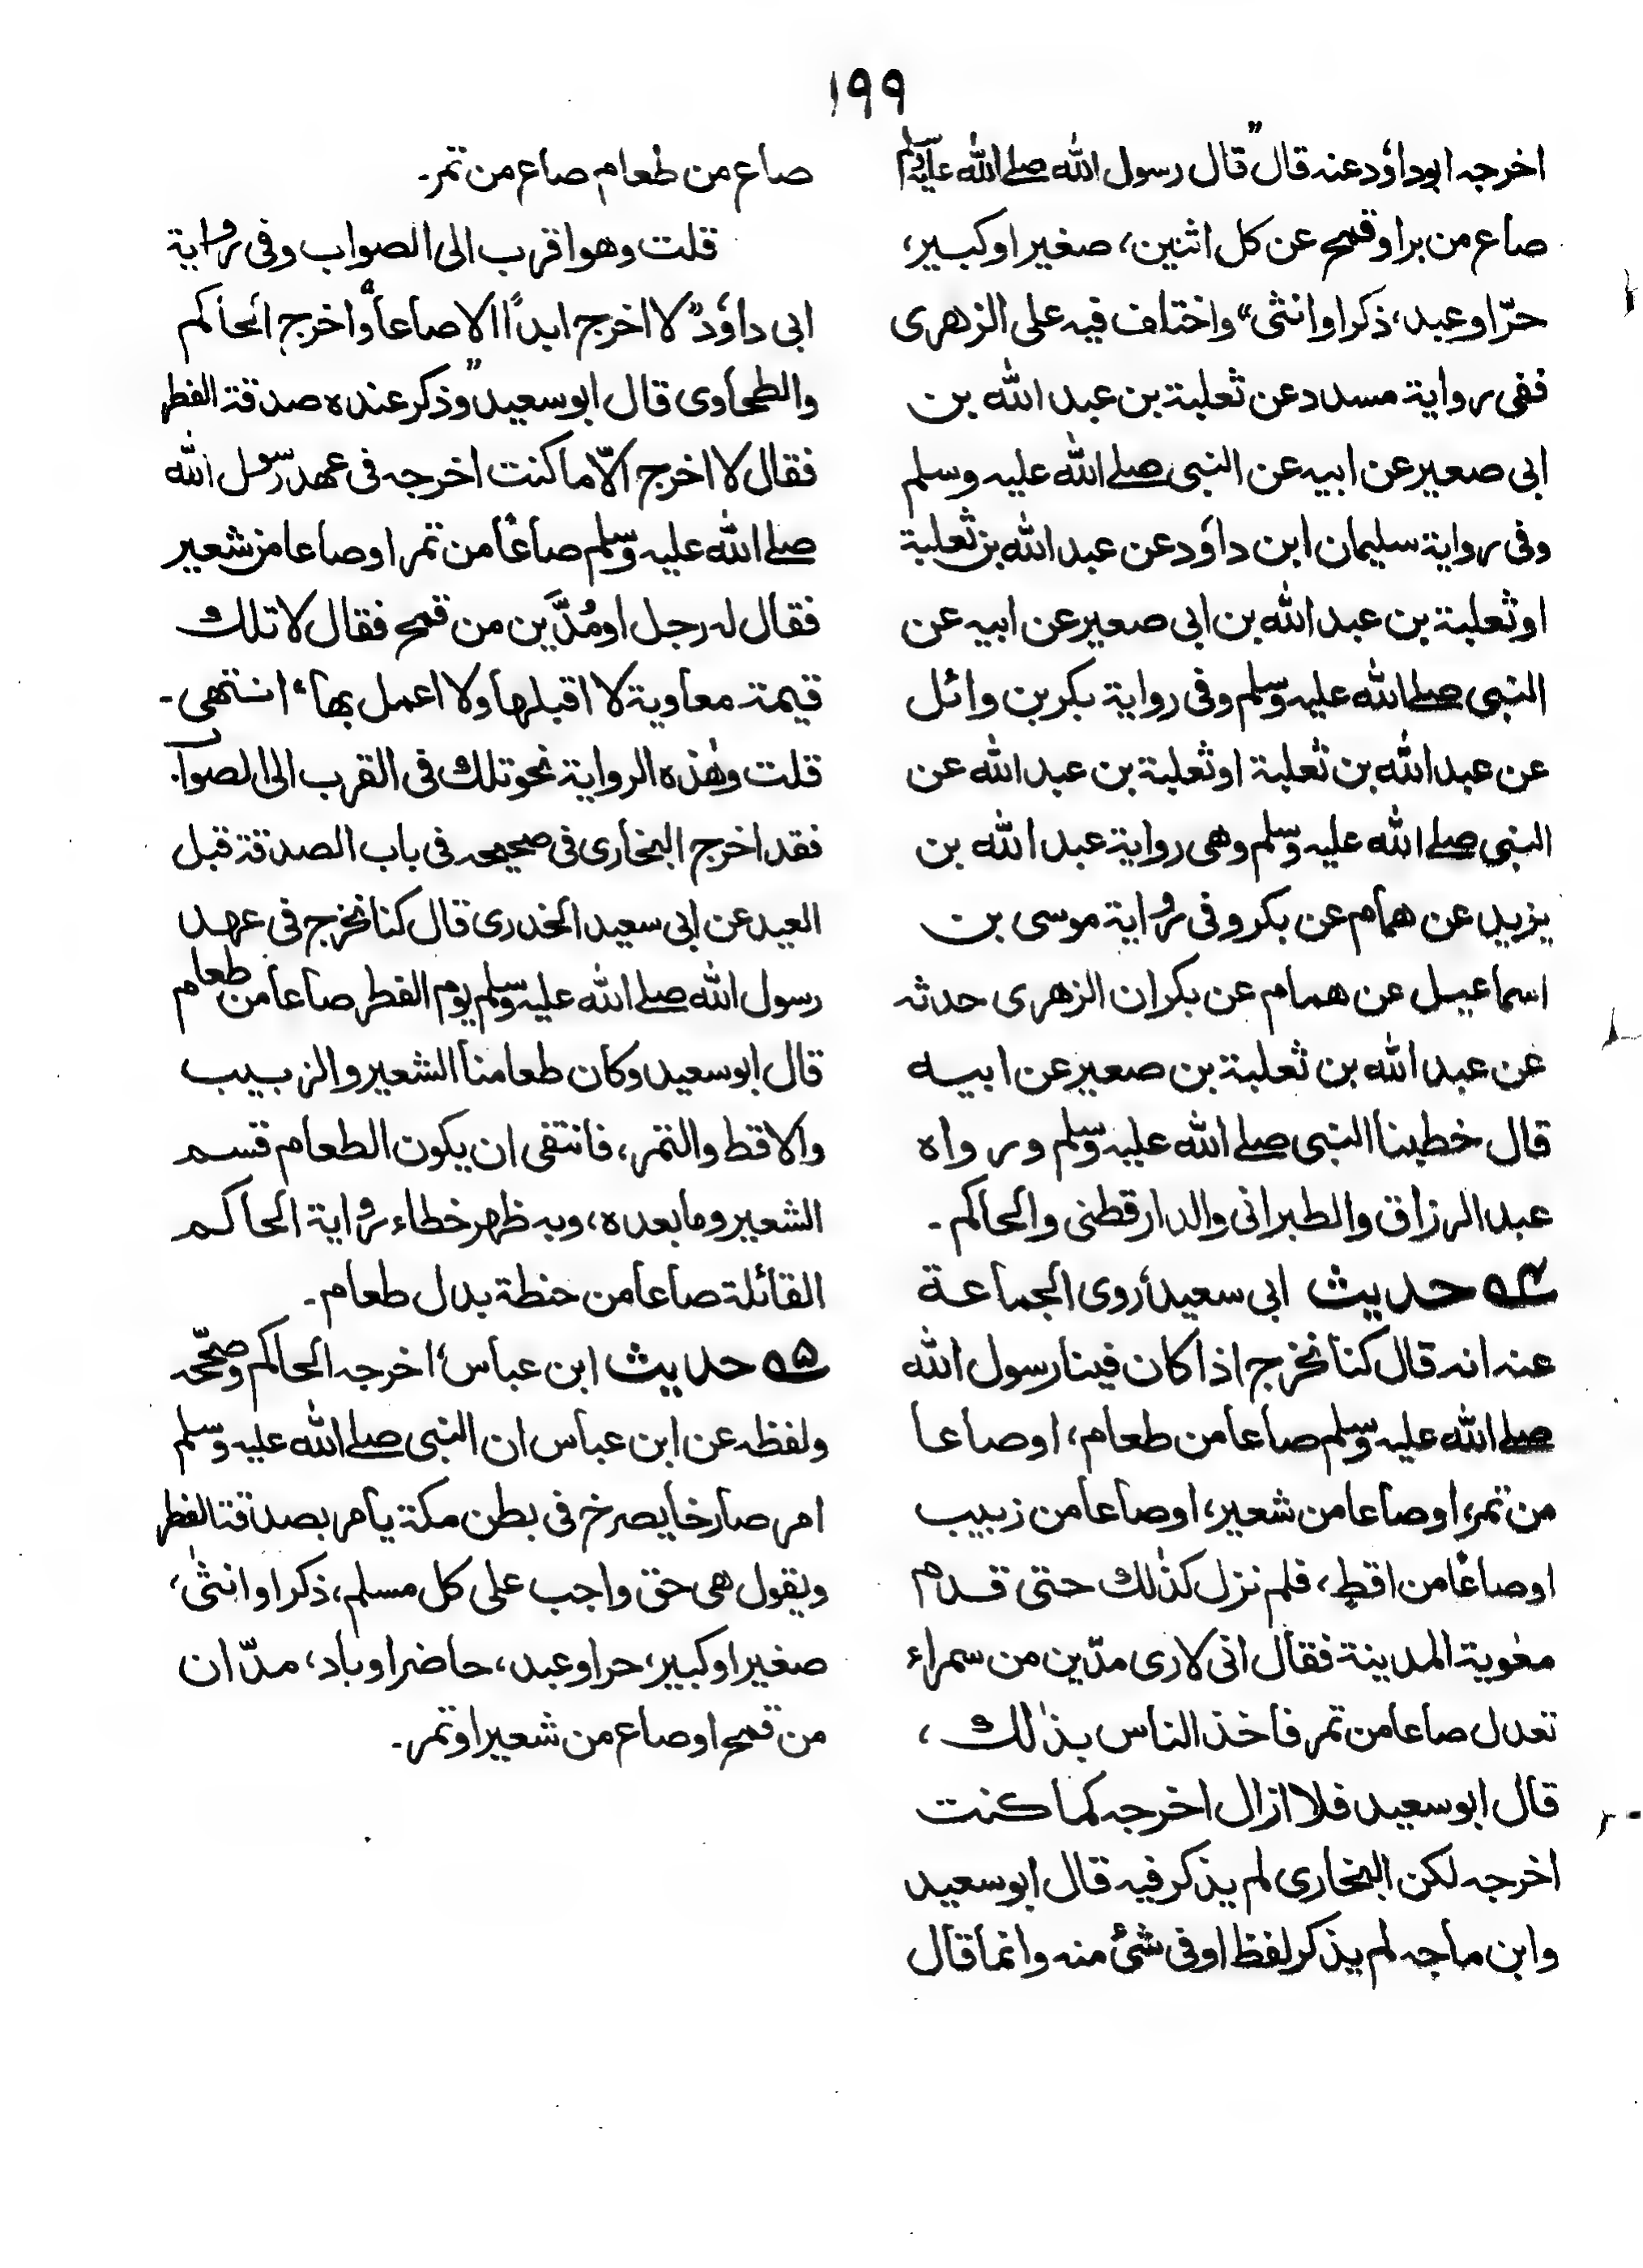 ١٩٩
اخرجه ابوداؤد عنه قال "قال رسول الله صلے الله عليه وسلم
صاع من بر او قمح عن كل اثنين، صغير او كبير،
حرّ او عبد، ذكر او انثى" واختلف فيه على الزهرى
ففى رواية مسدد عن ثعلبة بن عبد الله بن
ابى صعير عن ابيه عن النبى صلے الله عليه وسلم
وفى رواية سليمان ابن داؤد عن عبد الله بن ثعلبة
او ثعلبة بن عبد الله بن ابى صعير عن ابيه عن
النبى صلے الله عليه وسلم وفى رواية بكر بن وائل
عن عبد الله بن ثعلبة او ثعلبة بن عبد الله عن
النبى صلے الله عليه وسلم وهى رواية عبد الله بن
يزيد عن همام عن بكر وفى رواية موسى بن
اسماعيل عن همام عن بكر ان الزهرى حدثه
عن عبد الله بن ثعلبة بن صعير عن ابيه
قال خطبنا النبى صلے الله عليه وسلم ورواه
عبد الرزاق والطبرانى والدارقطنى والحاكم ـ
۵۴ حديث ابى سعيدؓ روى الجماعة
عنه انه قال كنا نخرج اذا كان فينا رسول الله
صلے الله عليه وسلم صاعا من طعام، او صاعا
من تمر، او صاعا من شعير، او صاعا من زبيب
او صاعًا من اقط، فلم نزل كذٰلك حتى قدم
معٰوية المدينة فقال انى لارى مدّين من سمراء
تعدل صاعا من تمر فاخذ الناس بذٰلك،
قال ابو سعيد فلا ازال اخرجه كما كنت
اخرجه لكن البخارى لم يذكر فيه قال ابو سعيد
وابن ماجه لم يذكر لفظ او فى شئ منه وانما قال
صاع من طعام صاع من تمر ـ
قلت وهو اقرب الى الصواب وفى رواية
ابى داؤد "لا اخرج ابدًا الا صاعا" واخرج الحاكم
والطحاوى قال ابو سعيد "وذكر عنده صدقة الفطر
فقال لا اخرج الّا ما كنت اخرجه فى عهد رسول الله
صلے الله عليه وسلم صاعًا من تمر او صاعا من شعير
فقال له رجل او مُدَّين من قمح فقال لا تلك
قيمة معاوية لا اقبلها ولا اعمل بها" انتهى ـ
قلت وهٰذه الرواية نحو تلك فى القرب الى الصواب
فقد اخرج البخارى فى صحيحه فى باب الصدقة قبل
العيد عن ابى سعيد الخدرى قال كنا نخرج فى عهد
رسول الله صلے الله عليه وسلم يوم الفطر صاعا من طعام
قال ابو سعيد وكان طعامنا الشعير والزبيب
والاقط والتمر، فانتفى ان يكون الطعام قسم
الشعير وما بعده، وبه ظهر خطاء رواية الحاكم
القائلة صاعا من حنطة بدل طعام ـ
۵۵ حديث ابن عباسؓ اخرجه الحاكم وصحّحه
ولفظه عن ابن عباس ان النبى صلے الله عليه وسلم
امر صارخا يصرخ فى بطن مكة يامر بصدقة الفطر
ويقول هى حق واجب على كل مسلم، ذكر او انثىٰ،
صغير او كبير، حر او عبد، حاضر او باد، مدّان
من قمح او صاع من شعير او تمر ـ